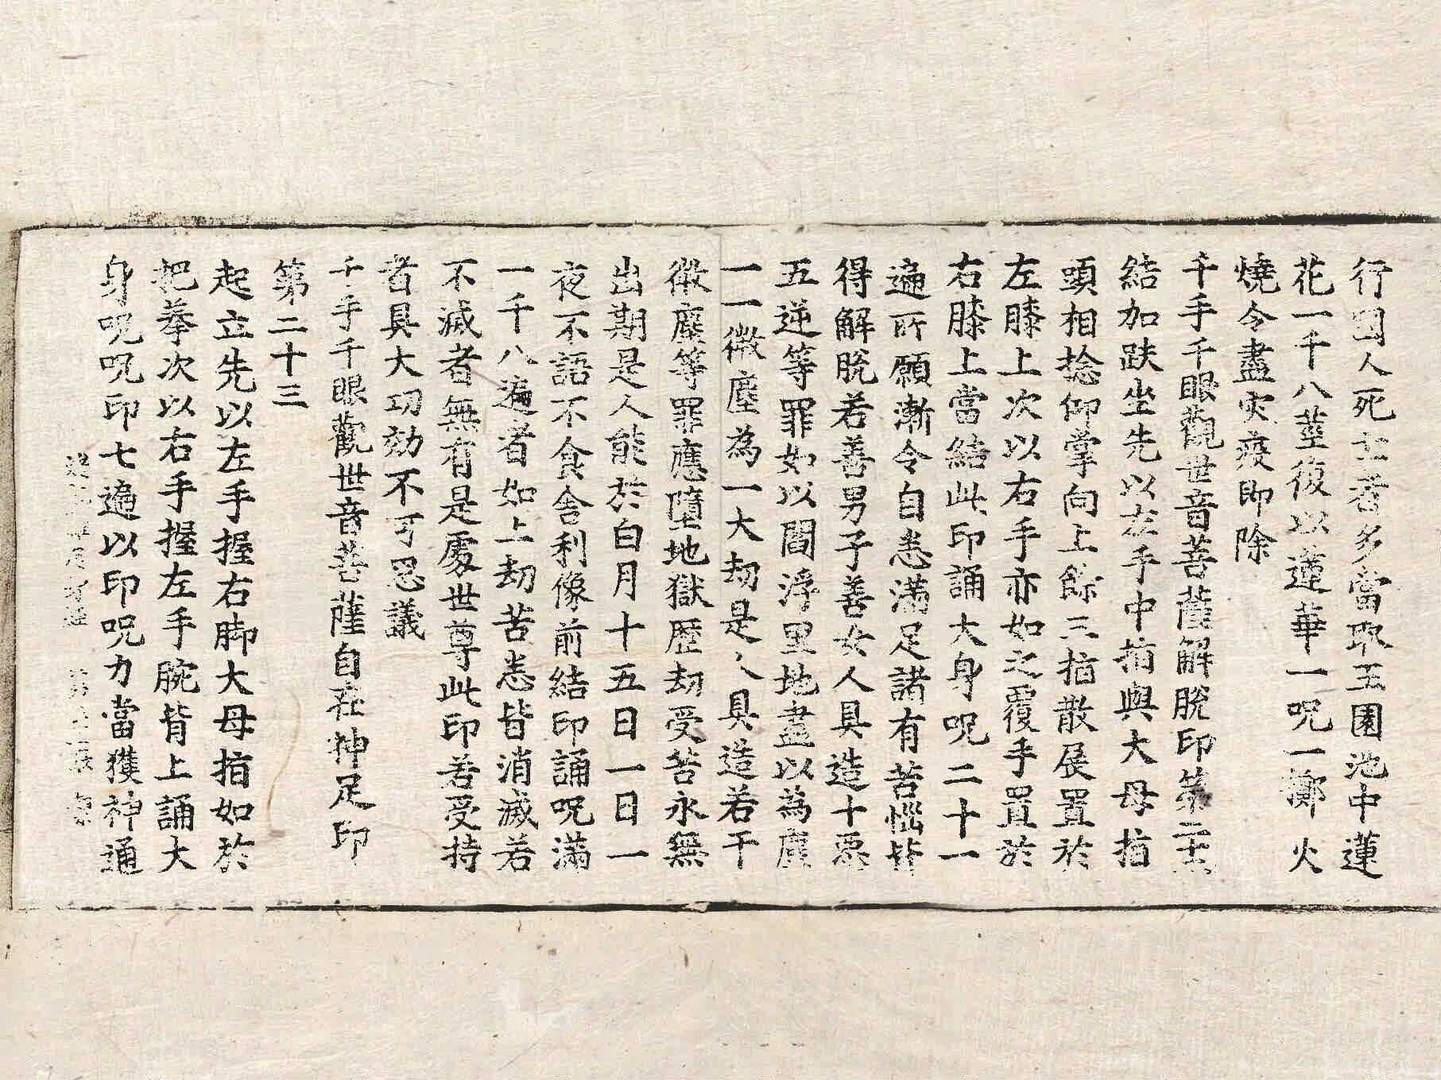 行國人死亡者多當取王園池中蓮
花一千八莖復以蓮華一呪一擲火
燒令盡灾疫即除
千手千眼觀世音菩薩解脫印第二十二
結加趺坐先以左手中指與大母指
頭相捻仰掌向上餘三指散展置於
左膝上次以右手亦如之覆手置於
右膝上當結此印誦大身呪二十一
遍所願漸令自悉滿足諸有苦惱皆
得解脫若善男子善女人具造十惡
五逆等罪如以閻浮里地盡以為塵
一一微塵為一大劫是人具造若干
微塵等罪應墮地獄歷劫受苦永無
出期是人能於白月十五日一日一
夜不語不食舍利像前結印誦呪滿
一千八遍者如上劫苦悉皆消滅若
不滅者無有是處世尊此印若受持
者具大功効不可思議
千手千眼觀世音菩薩自在神足印
第二十三
起立先以左手握右脚大母指如於
把拳次以右手握左手腕背上誦大
身呪呪印七遍以印呪力當獲神通